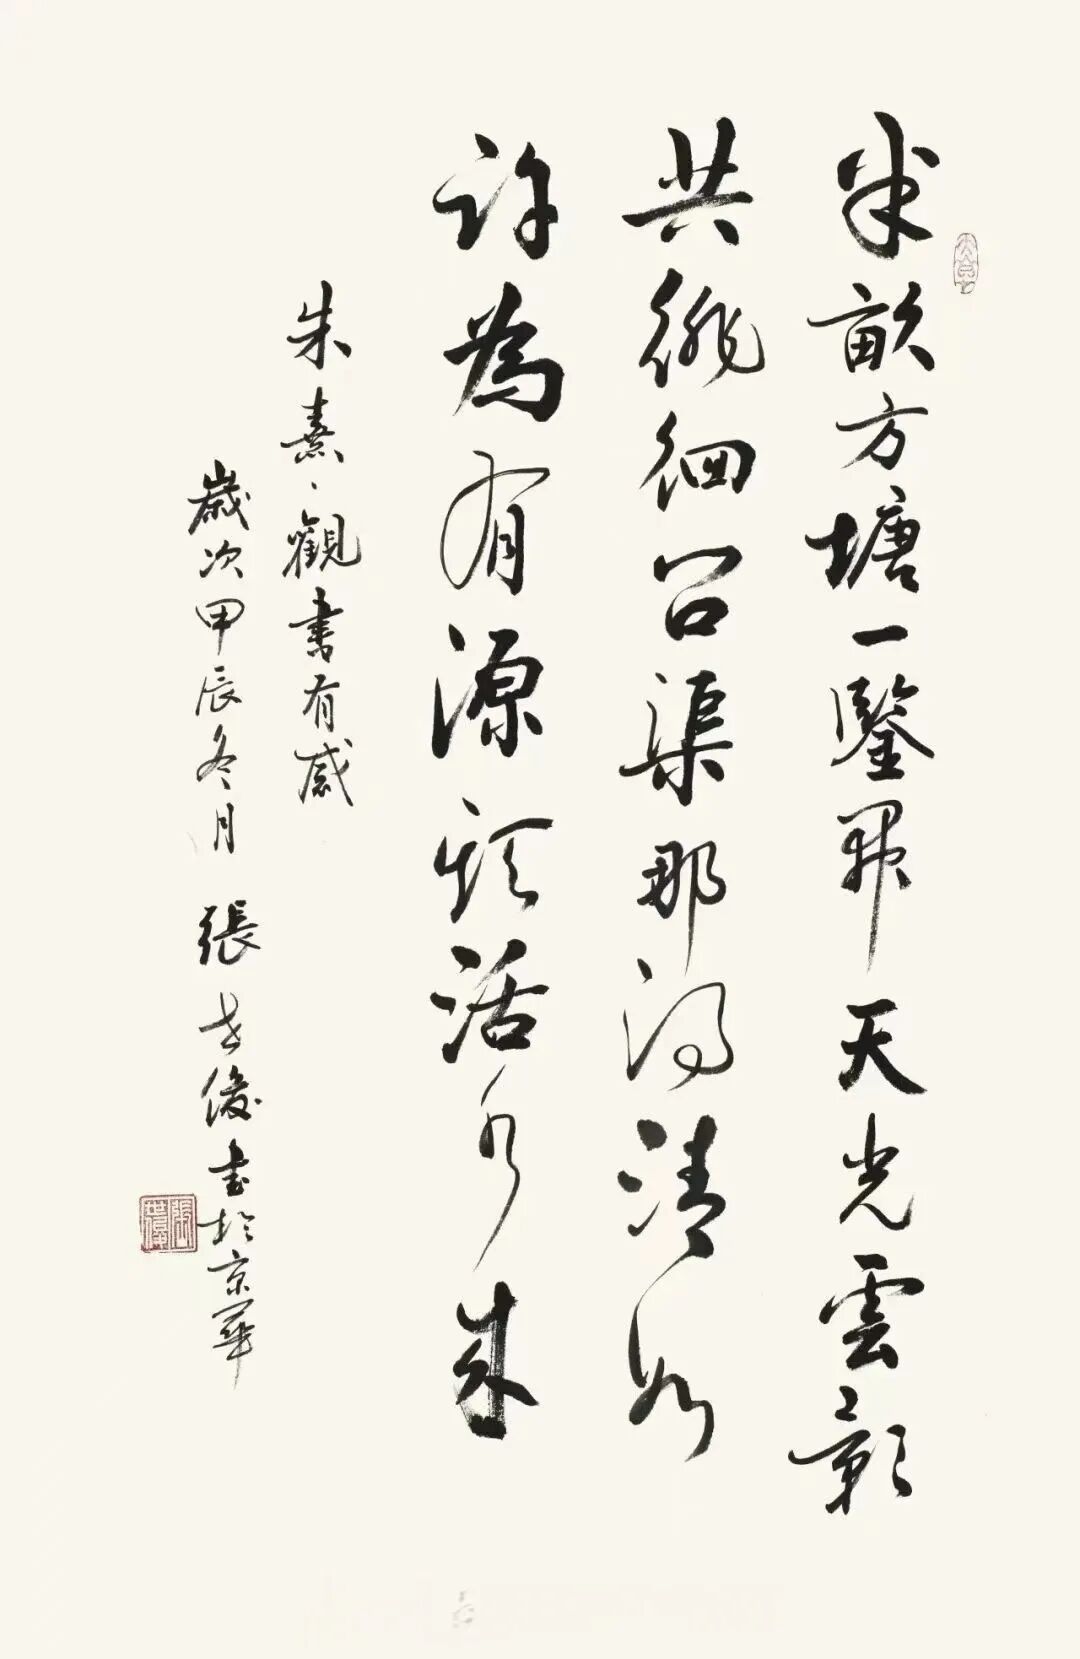 半畝方塘一鑒開天光雲影
共徘徊問渠那得清如
許為有源頭活水來
朱熹、觀書有感
歲次甲辰冬月 張世俊書於京華